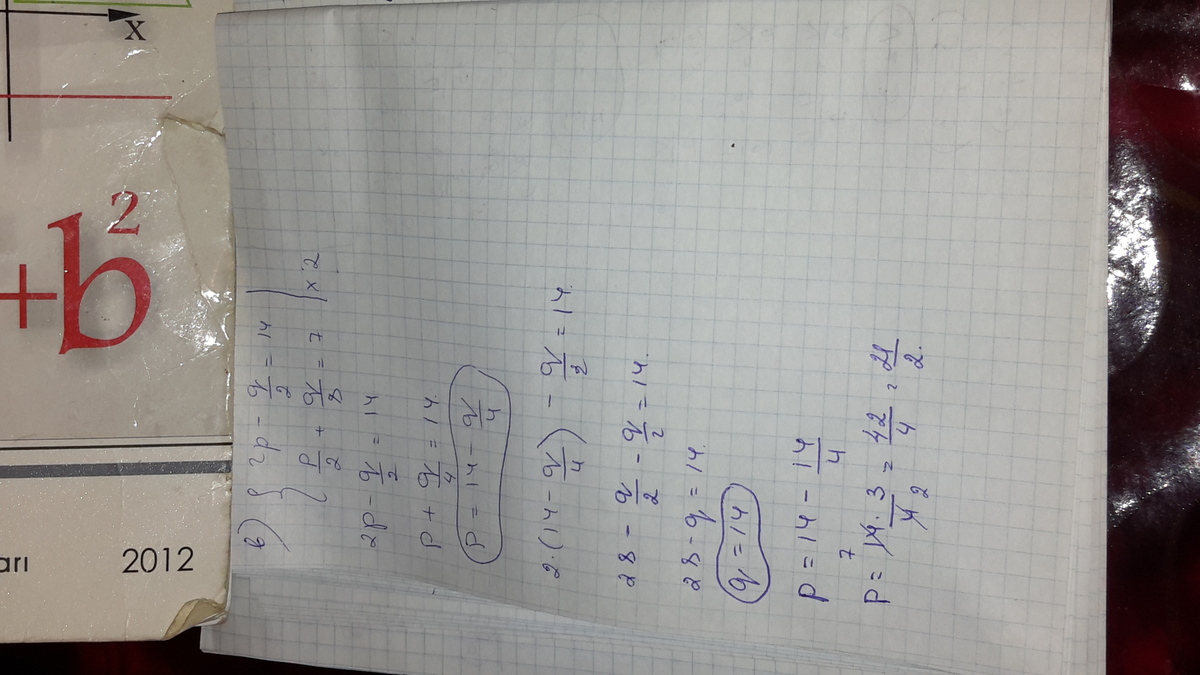 x
+b²
arı
2012
b) { 2p - q/2 = 14 |
p/2 + q/8 = 7 | × 2
2p - q/2 = 14
p + q/4 = 14.
p = 14 - q/4
2·(14 - q/4) - q/2 = 14.
28 - q/2 - q/2 = 14.
28 - q = 14.
q = 14
p = 14 - 14/4
7
p = 14·3/4 2 = 42/4 = 21/2.